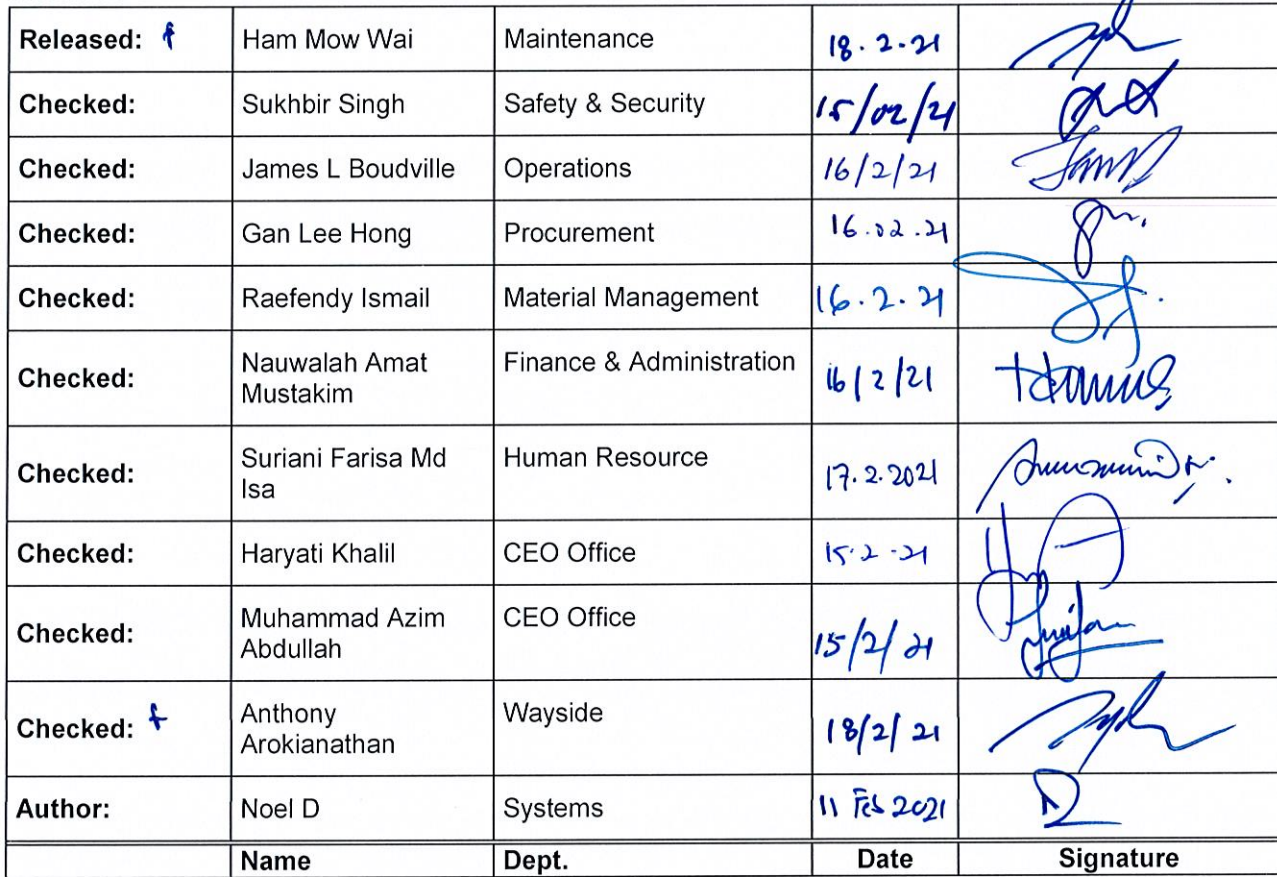 Released: f Ham Mow Wai Maintenance 18.2.21
Checked: Sukhbir Singh Safety & Security 15/02/21
Checked: James L Boudville Operations 16/2/21
Checked: Gan Lee Hong Procurement 16.02.21
Checked: Raefendy Ismail Material Management 16.2.21
Checked: Nauwalah Amat Finance & Administration 16/2/21
Mustakim
Checked: Suriani Farisa Md Human Resource 17.2.2021
Isa
Checked: Haryati Khalil CEO Office 15.2.21
Checked: Muhammad Azim CEO Office 15/2/21
Abdullah
Checked: f Anthony Wayside 18/2/21
Arokianathan
Author: Noel D Systems 11 Feb 2021
Name Dept. Date Signature